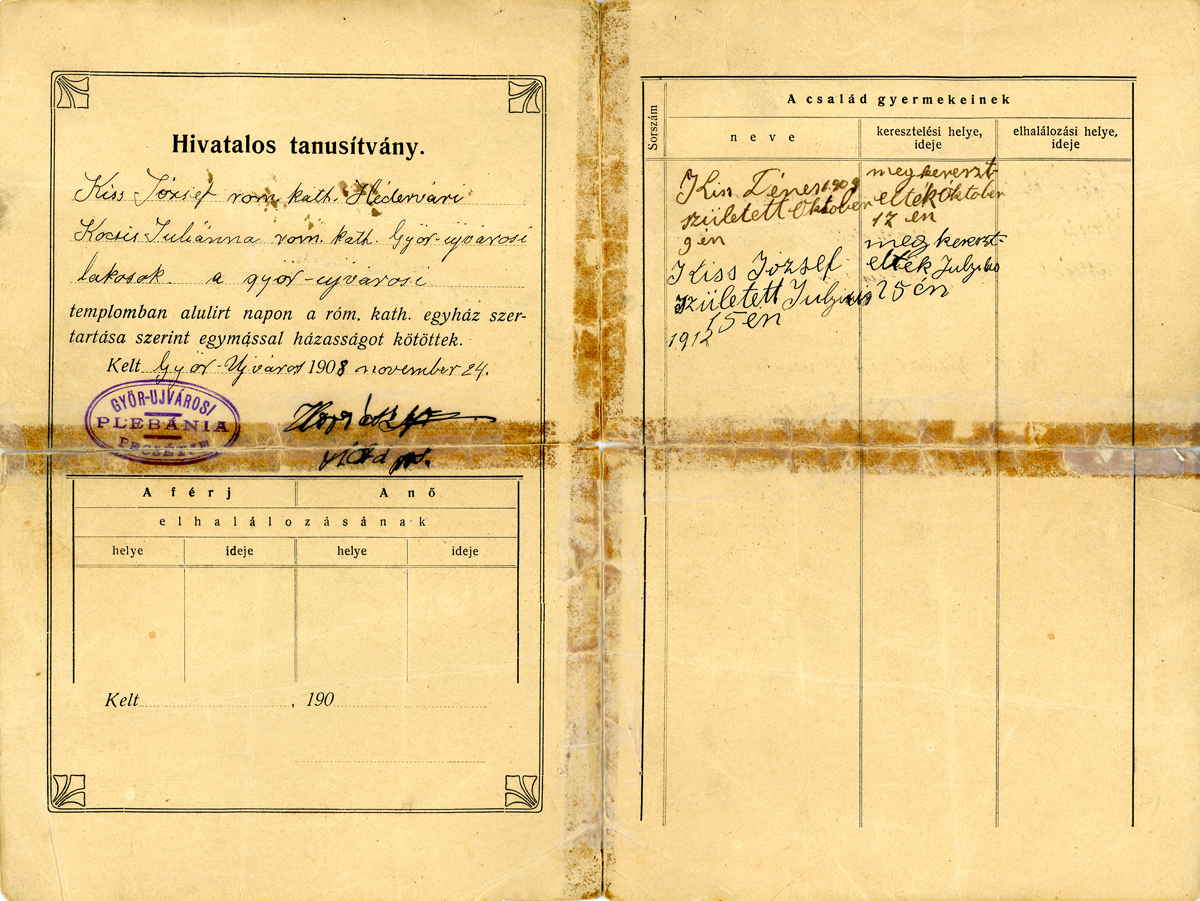 Hivatalos tanusítvány.
Kiss József rom. kath. Hédervári
Kocsis Juliánna rom. kath. Győr-ujvárosi
lakosok a győr-ujvárosi
templomban alulirt napon a róm. kath. egyház szer-
tartása szerint egymással házasságot kötöttek.
Kelt Győr-Ujváros 1908 november 24.
GYŐR-UJVÁROSI
PLEBÁNIA
PECSÉTJE
A férj A nő
elhalálozásának
helye ideje helye ideje
Kelt , 190
Sorszám
A család gyermekeinek
neve keresztelési helye, ideje elhalálozási helye, ideje
Kiss 1909
született Oktober
9 én
megkereszt-
elték Oktober
17 en
Kiss József
született Julzius
15 en
1912
megkereszt-
elték Julzius
25 én